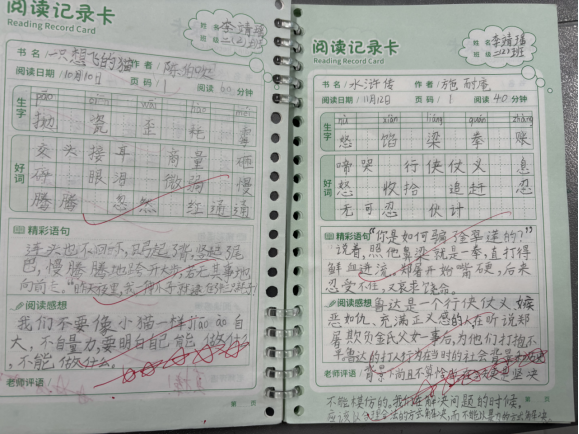 阅读记录卡
Reading Record Card
姓名 李靖瑶
班级 二(2)班
书名 一只想飞的猫 作者 陈伯吹
阅读日期 10月10日 页码 1 阅读 分钟
生字
pāo
抛 瓷 歪 耗 霉
好词
交头接耳 商量
眼泪 微弱 慢
腾腾 忽然 红通通
精彩语句
连头也不回
巴,慢腾腾地跨开大步,若无其事地
向前
阅读感想
我们不要像小猫一样jiāo ào自
大,不自量力,要明白自己能做什么,
不能做什么。
老师评语
阅读记录卡
Reading Record Card
姓名 李靖瑶
班级 二(2)班
书名 水浒传 作者 施耐庵
阅读日期 11月12日 页码 1 阅读 40 分钟
生字
nù xiàn liáng quán zhàng
怒 馅 梁 拳 账
好词
啼哭 行侠仗义 忍
怒 收拾 追赶 忍
无可忍 伙计
精彩语句 “你是如何骗金翠莲的?”
说着,照他鼻梁就是一拳,直打得
鲜血迸流,郑屠开始嘴硬,后来
忍受不住,又哀求饶命。
阅读感想 鲁达是一个行侠仗义、嫉
恶如仇、充满正义感的人在听说郑
屠欺负金氏父女一事后,为他们打抱不
平鲁达的打人行为在当时的社会背景
老师评语
不能模仿的。我们在解决问题的时候,
应该以合理合法的方式解决,而不能以暴力的方式去解决